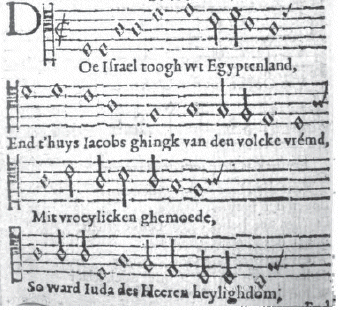 DOe Israel toogh wt Egyptenland,
End t'huys Iacobs ghingk van den volcke vrémd,
Mit vroeylicken ghemoede,
So ward Iuda des Heeren heylighdom;